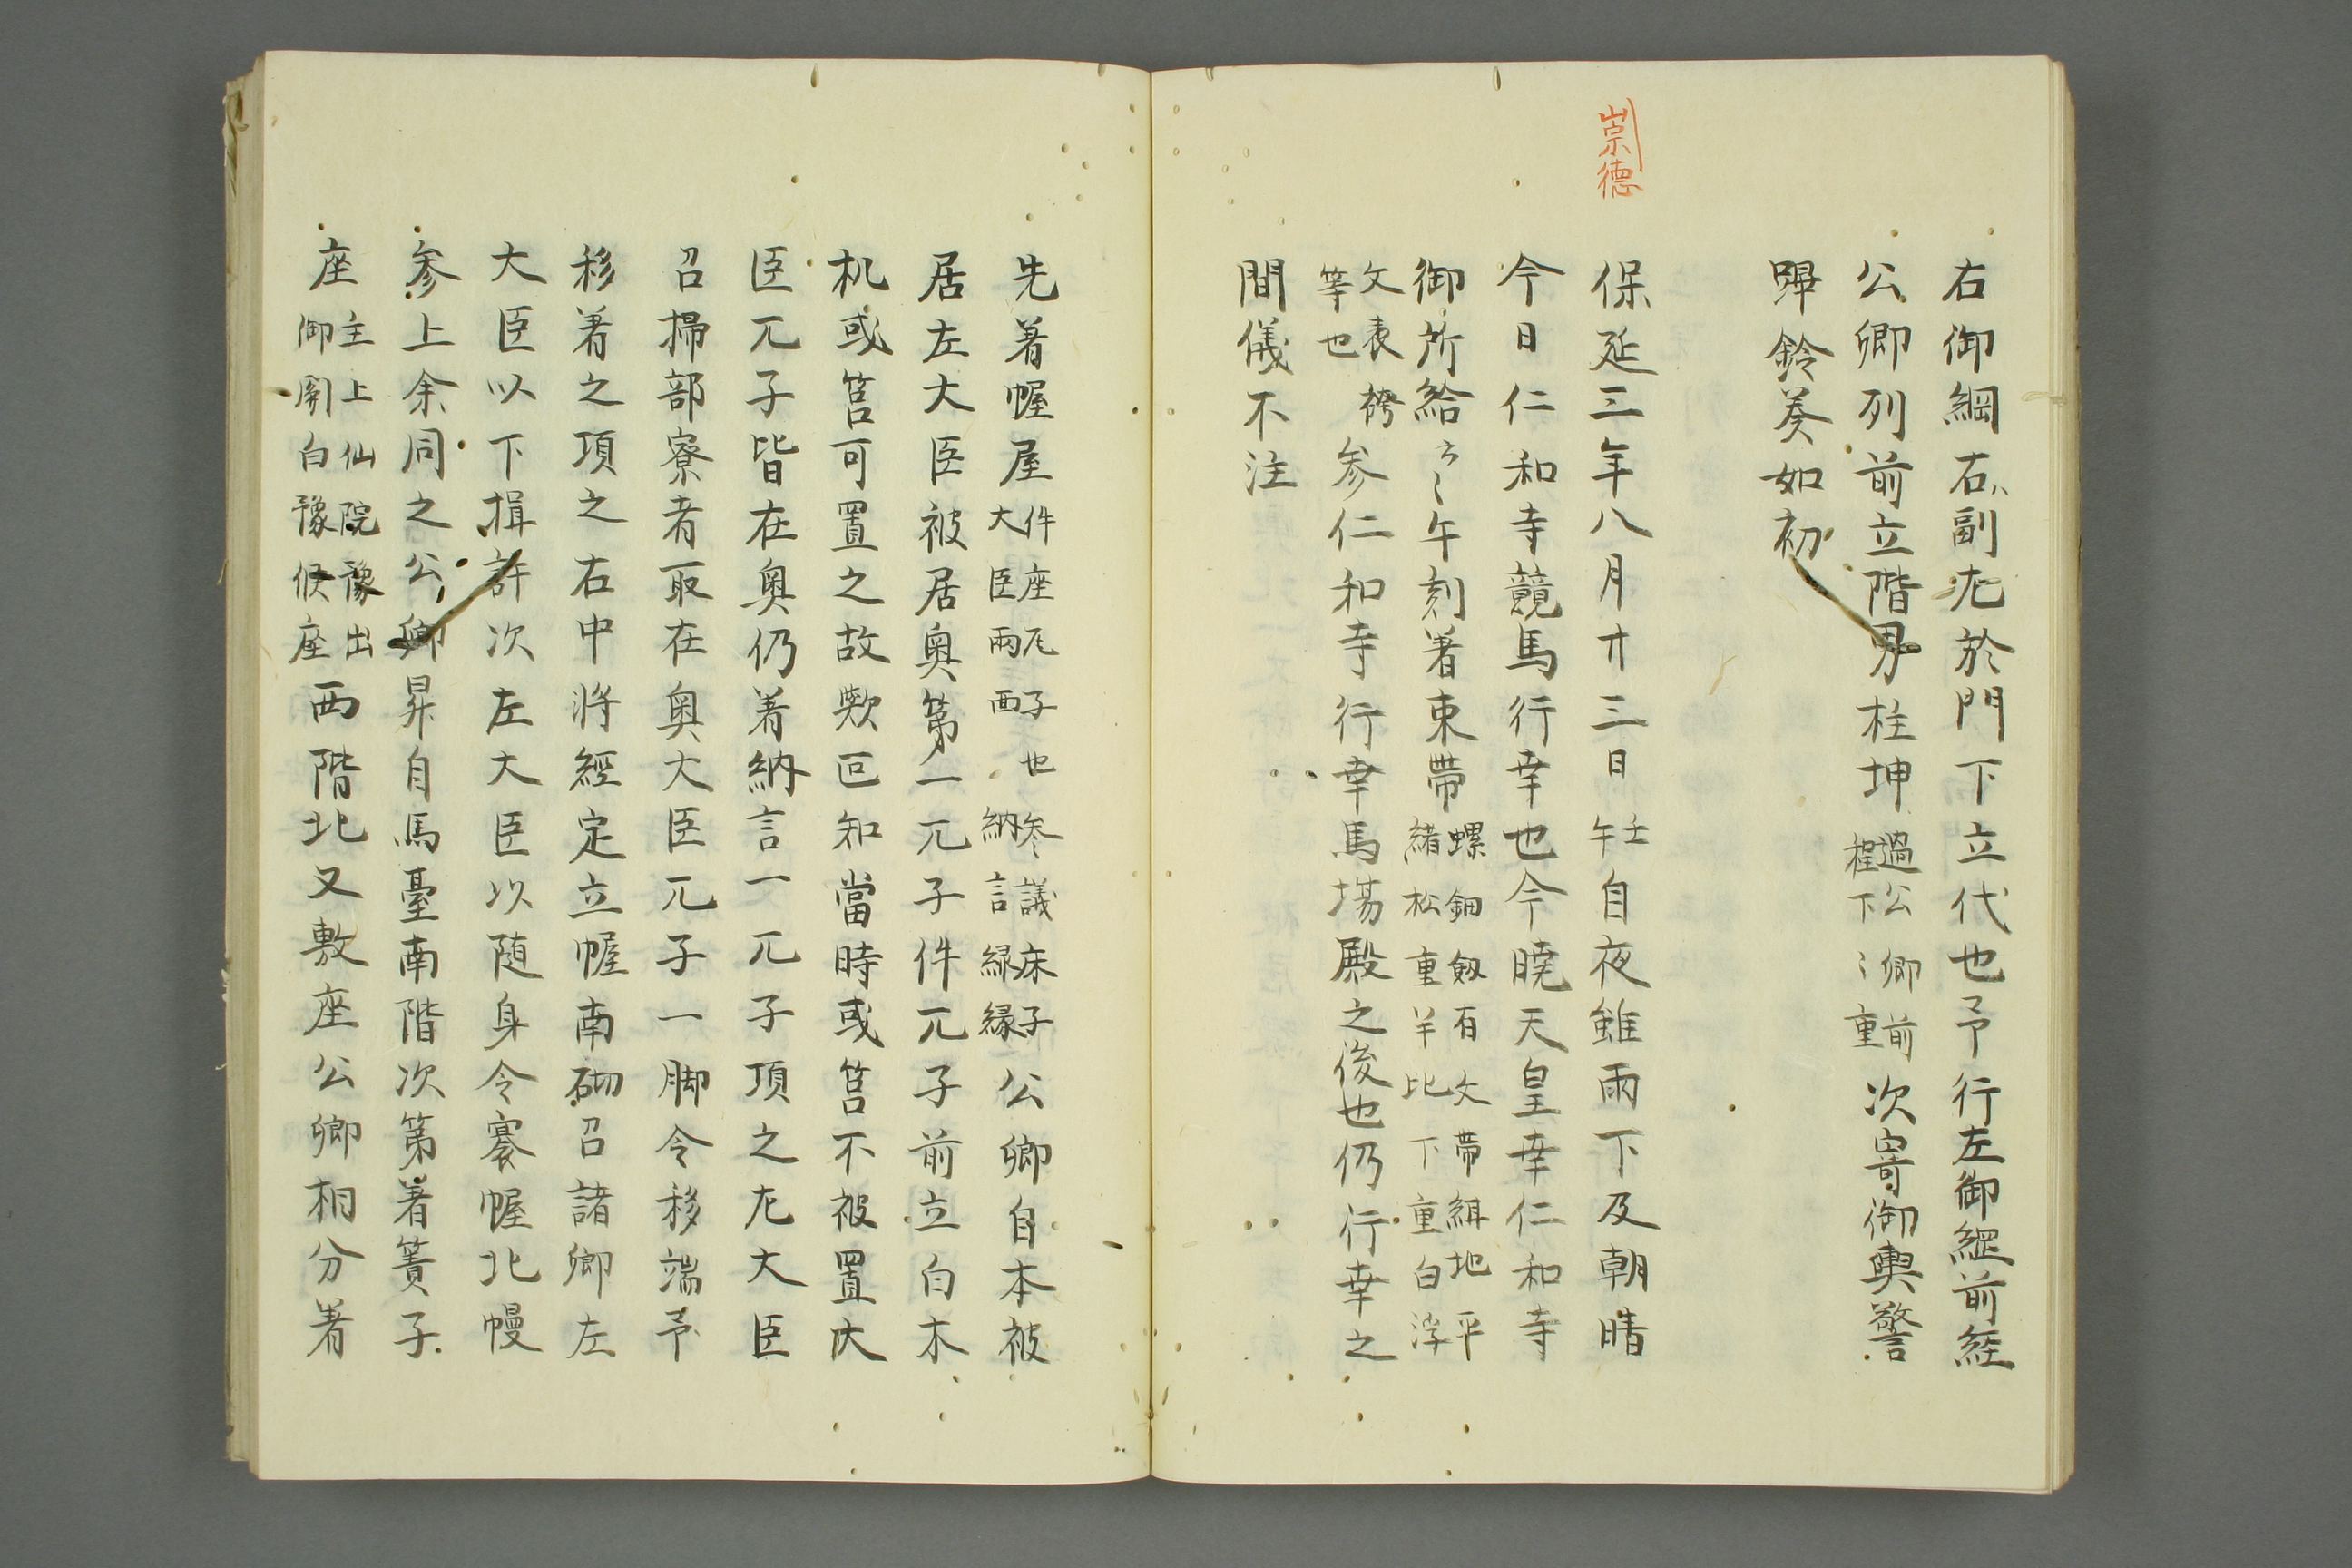 右御綱右副尨於門下立代也予行左御綱前經
公卿列前立階男柱坤過公卿前程下〻重次寄御輿警
蹕鈴奏如初
崇德
保延三年八月廿三日壬午自夜雖雨下及朝晴
今日仁和寺競馬行幸也今曉天皇幸仁和寺
御所給云〻午刻著束帶螺鈿劔有文帶緂地平緒松重半比下重白浮
文表袴等也参仁和寺行幸馬塲殿之後也仍行幸之
間儀不注
先著幄屋件座兀子也大臣兩面納言緑縁参議床子公卿自本被
居左大臣被居奥第一兀子件兀子前立白木
机或筥可置之故歟叵知當時或筥不被置大
臣兀子皆在奥仍著納言一兀子頂之尨大臣
召掃部寮者取在奥大臣兀子一脚令移端予
移著之項之右中將經定立幄南砌召諸卿左
大臣以下揖許次左大臣以随身令褰幄北幔
参上余同之公卿昇自馬臺南階次第著簀子
座主上仙院豫出御関白豫候座西階北又敷座公卿相分著